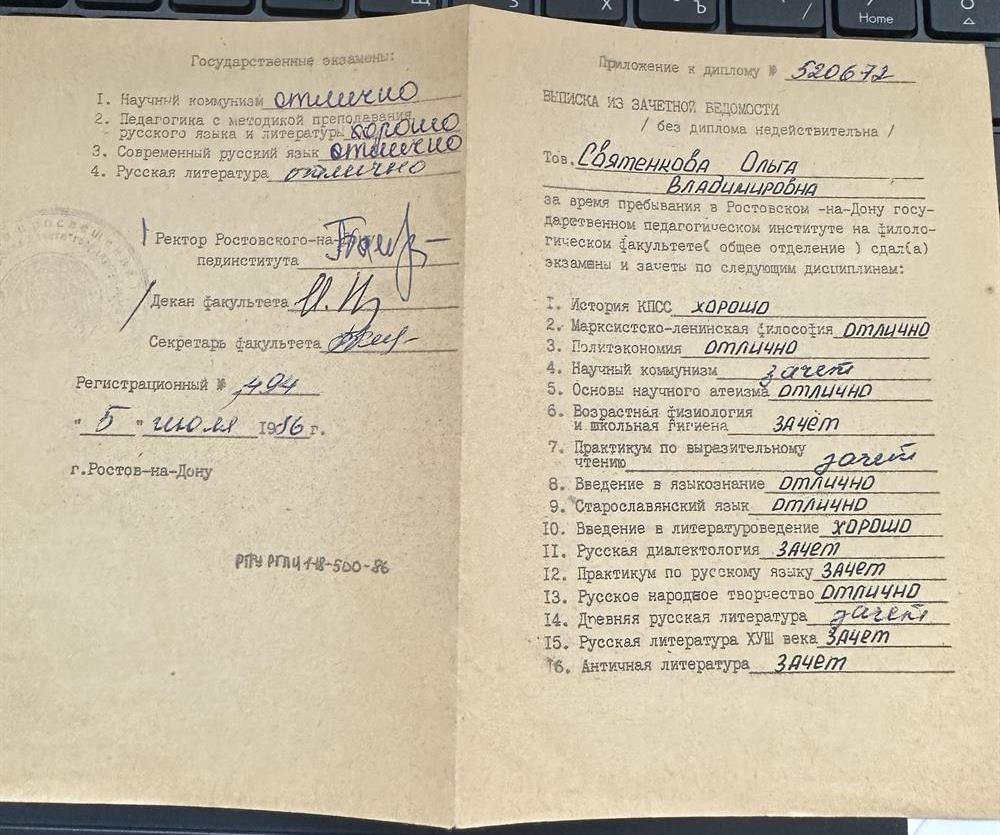 Государственные экзамены:
1. Научный коммунизм отлично
2. Педагогика с методикой преподавания
русского языка и литературы хорошо
3. Современный русский язык отлично
4. Русская литература отлично
Ректор Ростовского-на-
пединститута
Декан факультета
Секретарь факультета
Регистрационный № 494
"5" июля 1986 г.
г.Ростов-на-Дону
Приложение к диплому № 520672
ВЫПИСКА ИЗ ЗАЧЕТНОЙ ВЕДОМОСТИ
/ без диплома недействительна /
Тов. СВЯТЕНКОВА ОЛЬГА
ВЛАДИМИРОВНА
за время пребывания в Ростовском -на-Дону госу-
дарственном педагогическом институте на филоло-
гическом факультете( общее отделение ) сдал(а)
экзамены и зачеты по следующим дисциплинам:
1. История КПСС ХОРОШО
2. Марксистско-ленинская философия ОТЛИЧНО
3. Политэкономия ОТЛИЧНО
4. Научный коммунизм зачет
5. Основы научного атеизма ОТЛИЧНО
6. Возрастная физиология
и школьная гигиена ЗАЧЕТ
7. Практикум по выразительному
чтению зачет
8. Введение в языкознание ОТЛИЧНО
9. Старославянский язык ОТЛИЧНО
10. Введение в литературоведение ХОРОШО
11. Русская диалектология ЗАЧЕТ
12. Практикум по русскому языку ЗАЧЕТ
13. Русское народное творчество ОТЛИЧНО
14. Древняя русская литература зачет
15. Русская литература ХУШ века ЗАЧЕТ
16. Античная литература ЗАЧЕТ
Home